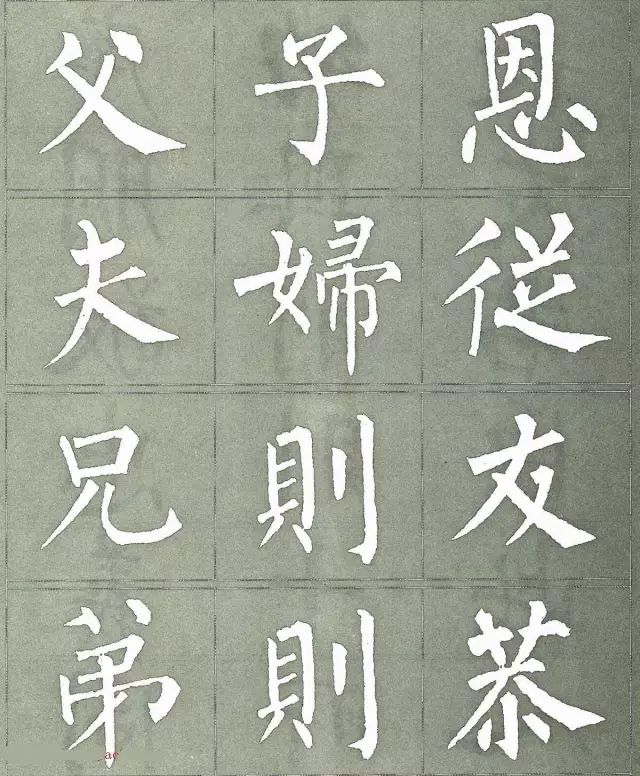 父子恩
夫婦從
兄則友
弟則恭